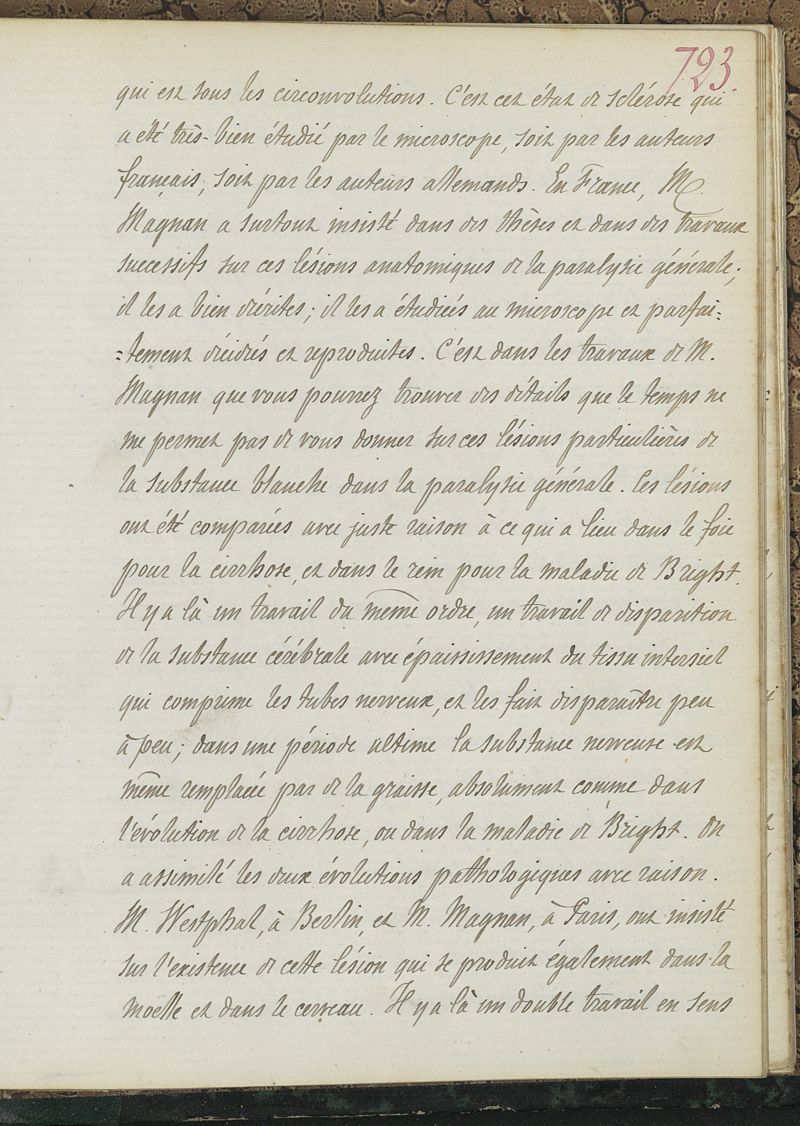 793
qui est sous les circonvolutions. C'est cet état de sclérose qui
a été très-bien étudié par le microscope, soit par les auteurs
français, soit par les auteurs allemands. En France, M.
Magnan a surtout insisté dans des thèses et dans des travaux
successifs sur ces lésions anatomiques de la paralysie générale;
il les a bien décrites; il les a étudiées au microscope et parfai=
=tement et reproduites. C'est dans les travaux de M.
Magnan que vous pourrez trouver des détails que le temps ne
me permet pas de vous donner sur ces lésions particulières de
la substance blanche dans la paralysie générale. Ces lésions
ont été comparées avec juste raison à ce qui a lieu dans le foie
pour la cirrhose, et dans le rein pour la maladie de Bright.
Il y a là un travail du même ordre, un travail de disparition
de la substance cérébrale avec épaississement du tissu intersiel
qui comprime les tubes nerveux, et les fait disparaître peu
à peu; dans une période ultime la substance nerveuse est
même remplacée par de la graisse, absolument comme dans
l'évolution de la cirrhose, ou dans la maladie de Bright. On
a assimilé les deux évolutions pathologiques avec raison.
M. Westphal, à Berlin, et M. Magnan, à Paris, ont insisté
sur l'existence de cette lésion qui se produit également dans la
moelle et dans le cerveau. Il y a là un double travail en sens